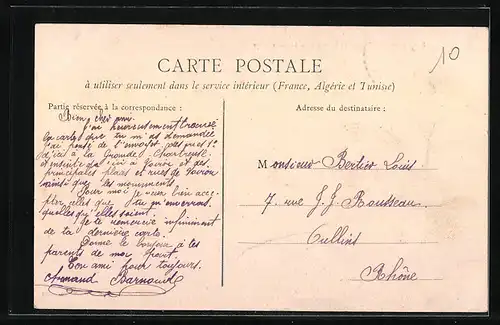 10
CARTE POSTALE
à utiliser seulement dans le service intérieur (France, Algérie et Tunisie)
Partie réservée à la correspondance :
Adresse du destinataire :
Bien cher ami.
J'ai heureusement trouvé
la carte que tu m'as demandée
J'ai pensé de t'envoyer
d'ici à la Grande Chartreuse
ensuite à Voiron et des
principales places et rues de Voiron
ainsi que les monuments
Pour moi je veux bien acce-
pter celles que tu m'enverras
quelles qu'elles soient.
Je te remercie infiniment
de ta dernière carte.
Donne le bonjour à tes
parents de ma part.
Ton ami pour toujours.
Armand Barnoud
Monsieur Bertier Louis
7 rue J. J. Rousseau.
Oullins
Rhône